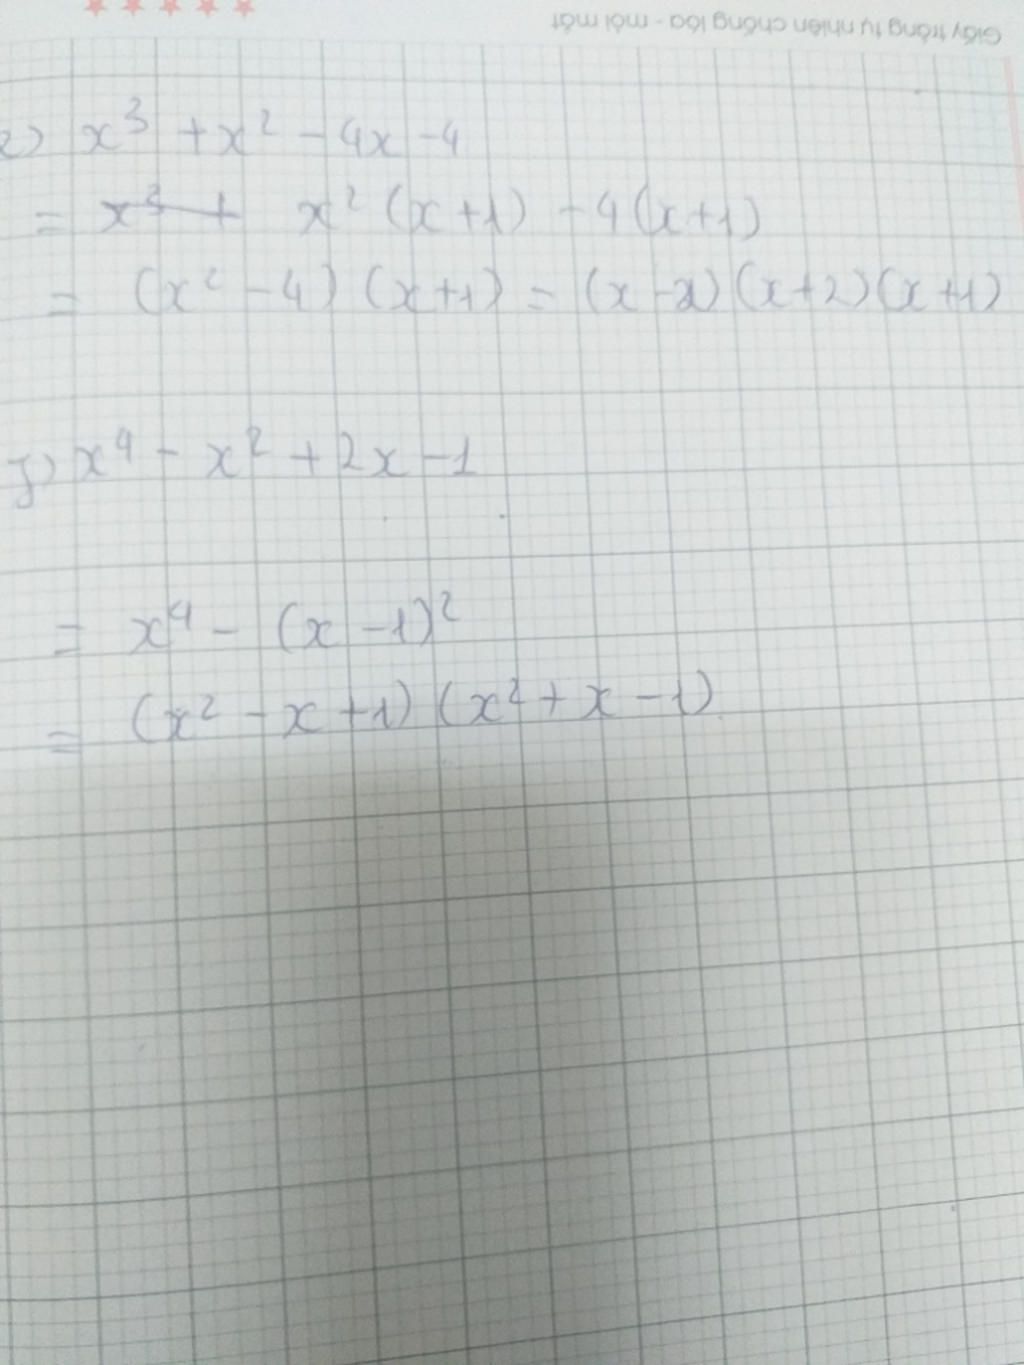 Giấy trắng tự nhiên chống lóa - mỏi mắt
e) x³ + x² - 4x - 4
= x² (x+1) - 4(x+1)
= (x² - 4) (x+1) = (x - 2) (x+2) (x+1)
f) x⁴ - x² + 2x - 1
= x⁴ - (x - 1)²
= (x² - x + 1) (x² + x - 1)